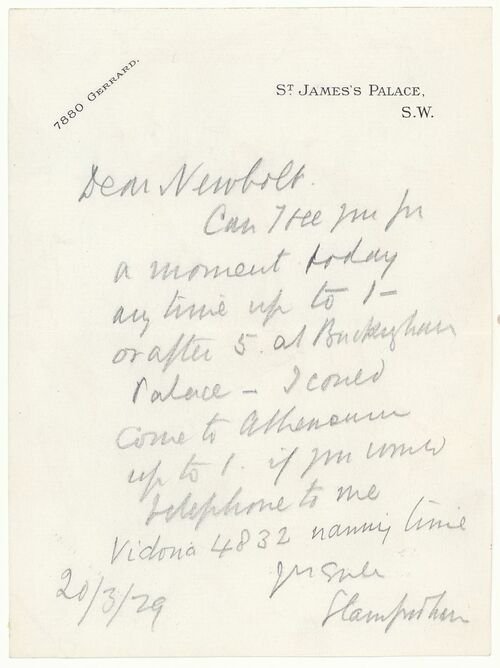 7880 GERRARD.
ST JAMES'S PALACE,
S.W.
Dear Newbolt.
Can I see you for
a moment today
any time up to 1 —
or after 5. at Buckingham
Palace — I could
come to Athenaeum
up to 1. if you would
telephone to me
Victoria 4832 naming time
Yrs
Stamfordham
20/3/29